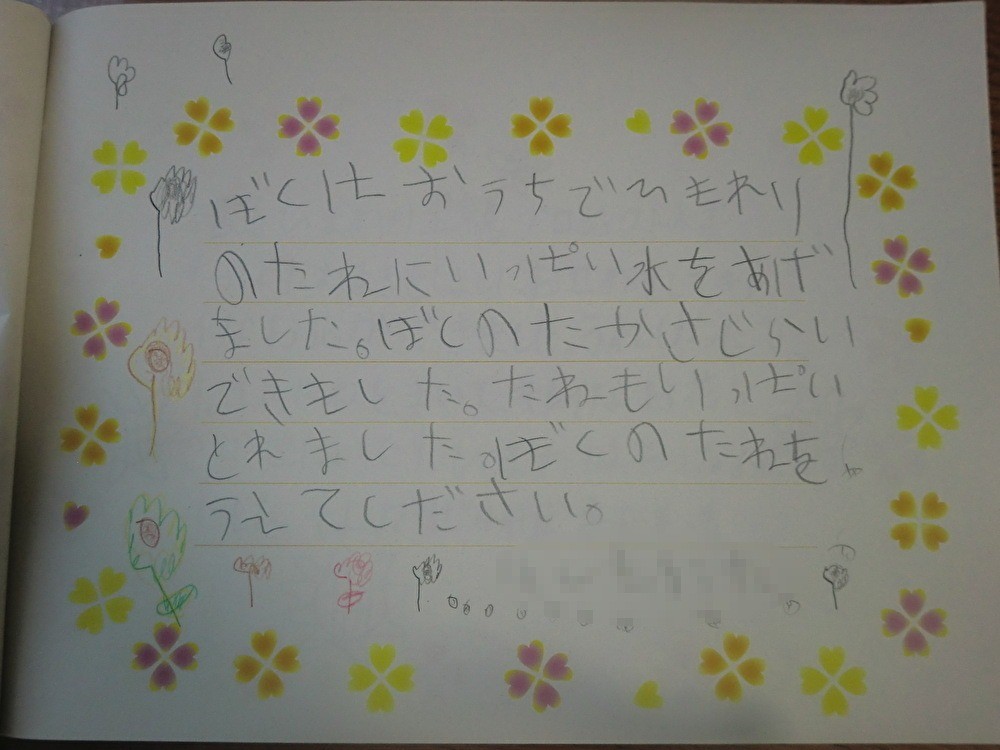 ぼくは おうちでひまわり
のたねにいっぱい水をあげ
ました。ぼくのたかさじらい
できました。たねもいっぱい
とれました。ぼくのたねを
うえてください。